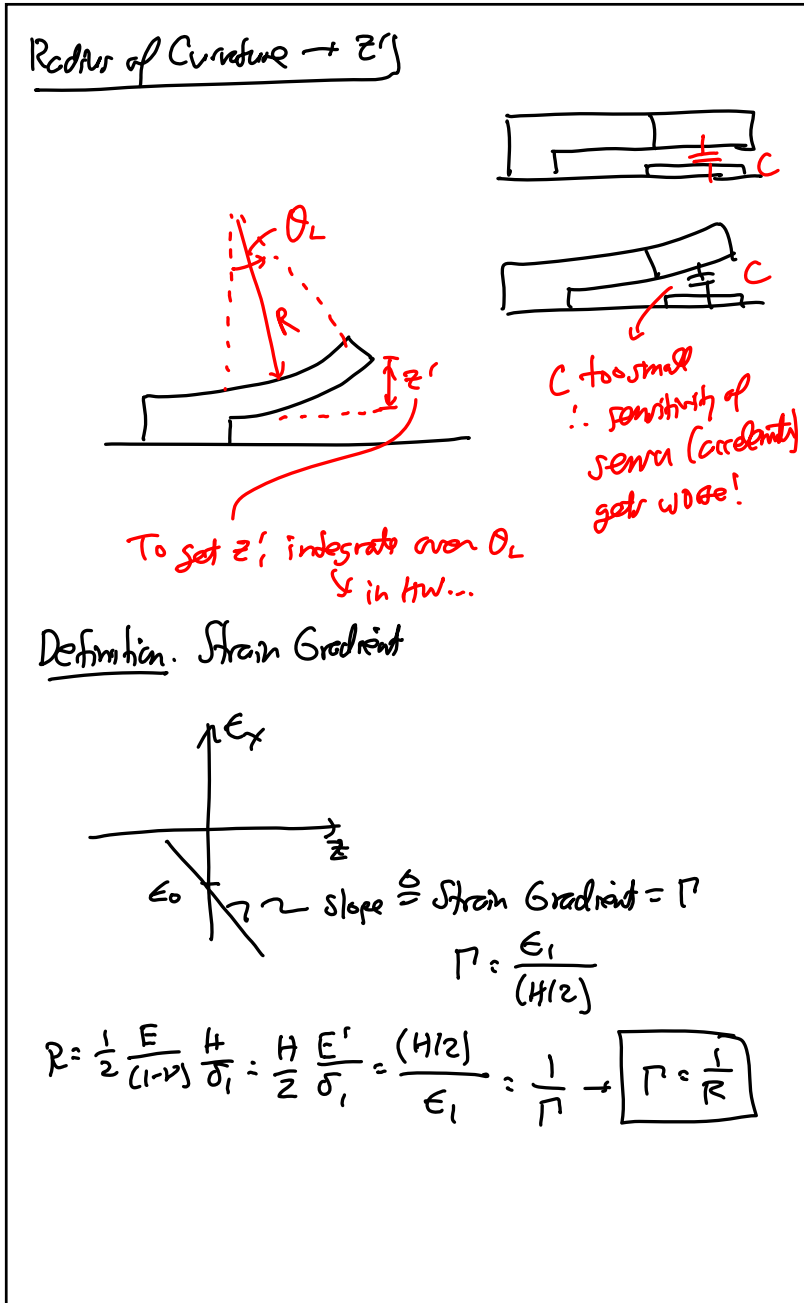 Radius of Curvature → z'
C
θ_L
R
z'
C
C too small
∴ sensitivity of
sensor (accelerometer)
gets worse!
To get z', integrate over θ_L
in HW...
Definition. Strain Gradient
ε_x
z
ε_0
slope ≜ Strain Gradient = Γ
Γ = ε_1/(H/2)
R = 1/2 E/(1-ν) H/σ_1 = H/2 E'/σ_1 = (H/2)/ε_1 = 1/Γ → Γ = 1/R